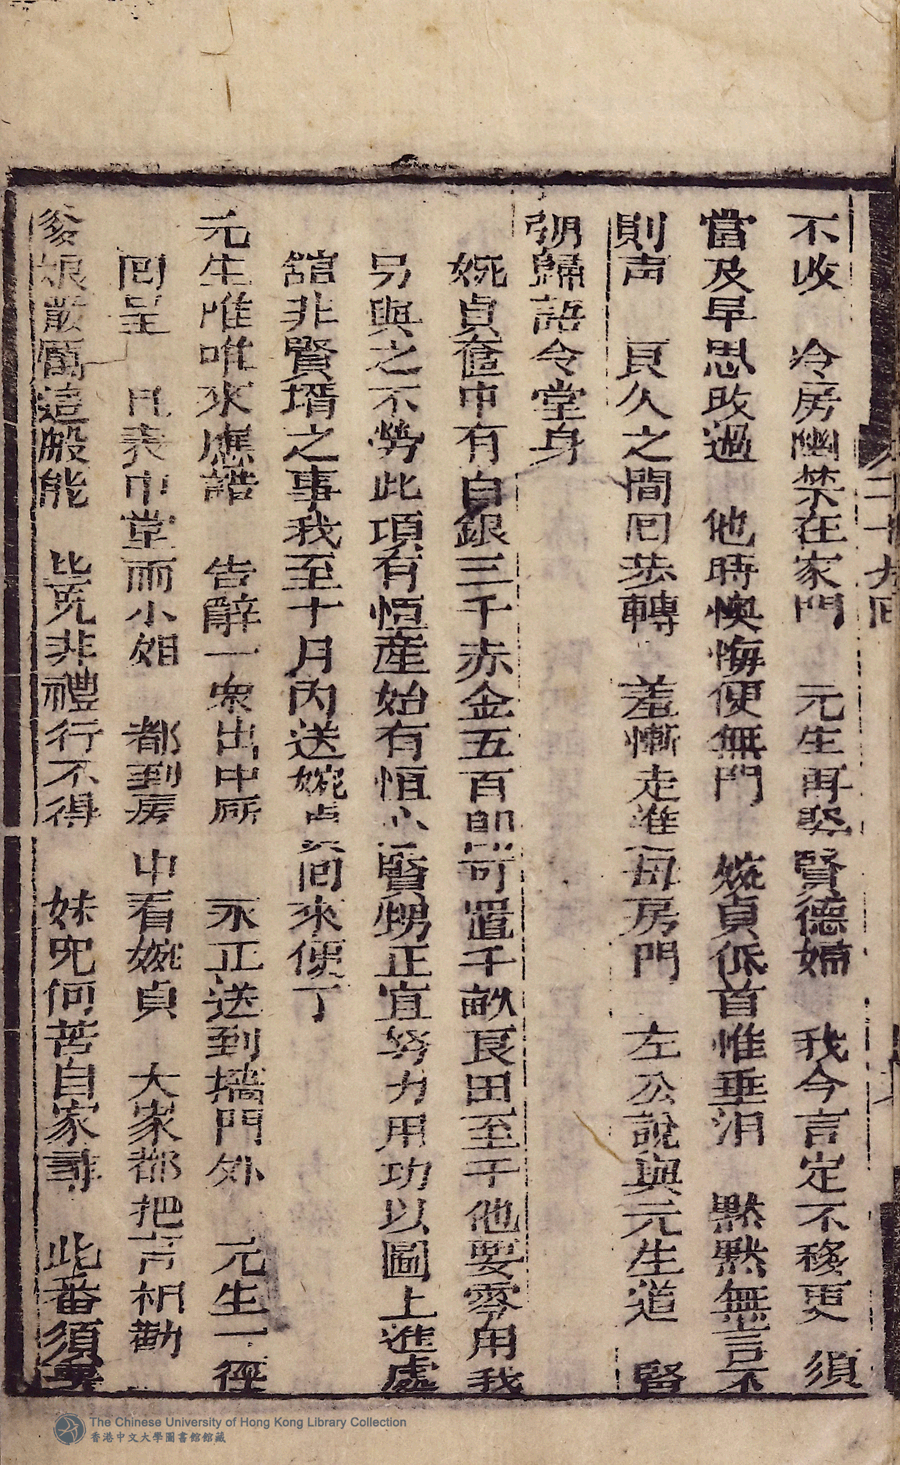 二十九回
不收　冷房幽禁在家門　元生再娶賢德婦　我今言定不移更　須
當及早思改過　他時懊悔便無門　婉貞低首惟垂泪　黙黙無言不
則声　良久之間囘恭轉　羞慚走進母房門　左公說與元生道　賢
甥歸語令堂身
婉貞奩中有白銀三千赤金五百即可置千畝良田至于他要零用我
另與之不勞此項有恒產始有恒心賢甥正宜努力用功以圖上進處
舘非賢壻之事我至十月內送婉貞回來便了
元生唯唯來應諾　告辭一衆出中厛　永正送到墻門外　元生一徑
囘呈　且表中堂兩小姐　都到房中看婉貞　大家都把言相勸
爹娘嚴厲這般能　比兇非禮行不得　妹兒何苦自家尋　此番須要
The Chinese University of Hong Kong Library Collection
香港中文大學圖書館館藏